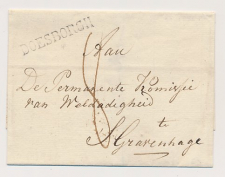 DOESBORGH
Aan
De Permanente Komissie
van Weldadigheid
te
S'Gravenhage